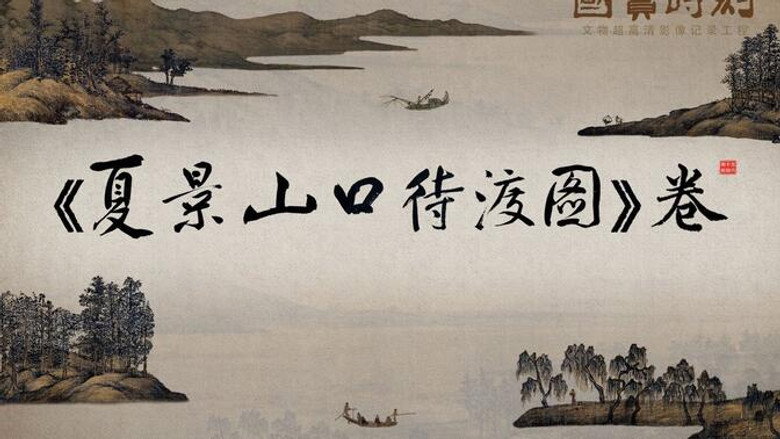 國寶時刻
文物超高清影像记录工程
《夏景山口待渡图》卷